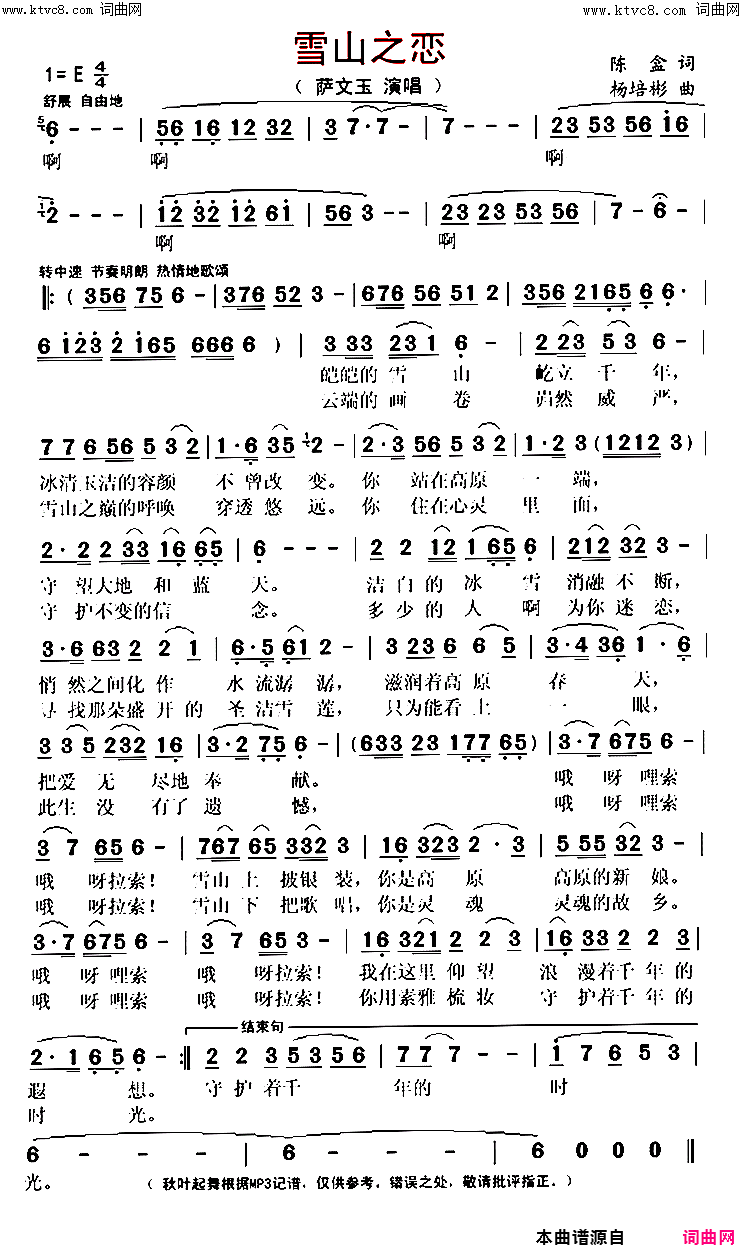 www.ktvc8.com 词曲网
词曲网 www.ktvc8.com
雪山之恋
1=E 4/4
（ 萨文玉 演唱 ）
陈 金 词
杨培彬 曲
舒展 自由地
5/4 6 - - - | 56 16 12 32 | 3 7·7 - | 7 - - - | 23 53 56 i6 |
啊 啊 啊
1/4 2 - - - | 12 32 12 61 | 56 3 - - | 23 23 53 56 | 7 - 6 - |
啊 啊
转中速 节奏明朗 热情地歌颂
‖: ( 356 75 6 - | 376 52 3 - | 676 56 51 2 | 356 2165 6 6· |
6 123 2 165 666 6 ) | 3 333 23 1 6 - | 2 223 5 3 6 - |
皑皑的 雪 山 屹立 千 年，
云端的 画 卷 岿然 威 严，
7 7 6 56 5 3 2 | 1·6 35 1/4 2 - | 2·3 56 53 2 | 1·2 3 (1212 3) |
冰清玉洁的容颜 不 曾改 变。你 站在高原 一 端，
雪山之巅的呼唤 穿透 悠 远。你 住在心灵 里 面，
2·2 2 33 16 65 | 6 - - - | 2 2 12 1 65 6 | 212 32 3 - |
守 望大地 和 蓝 天。 洁白 的 冰 雪 消融 不 断，
守 护不变的信 念。 多少 的 人 啊 为你 迷 恋，
3·6 63 2 2 1 | 6·5 61 2 - | 3 23 6 6 5 | 3·4 36 1·6 |
悄 然之间化 作 水 流潺 潺， 滋润着高 原 春 天，
寻 找那朵盛 开 的 圣 洁雪 莲， 只为能看 上 一 眼，
3 3 5 232 16 | 3·2 75 6 - | (633 23 177 65) | 3·7 675 6 - |
把爱 无 尽地 奉 献。 哦 呀 哩索
此生 没 有了 遗 憾， 哦 呀 哩索
3 7 65 6 - | 767 65 332 3 | 16 323 2·3 | 5 55 32 3 - |
哦 呀拉索！ 雪山 上 披银 装，你是高 原 高原的新 娘。
哦 呀拉索！ 雪山 下 把歌 唱，你是灵 魂 灵魂的故 乡。
3·7 675 6 - | 3 7 65 3 - | 16 321 2 2 3 | 16 332 2 3 |
哦 呀 哩索 哦 呀拉索！ 我在这里 仰望 浪 漫着千年的
哦 呀 哩索 哦 呀拉索！ 你用素雅 梳妆 守 护着千年的
结束句
2·1 65 6 - :‖ 2 2 35 35 6 | 7 7 7 - - | 1 7 6 5 3 |
遐 想。 守 护 着千 年的 时
时 光。
6 - - - | 6 - - - | 6 0 0 0 ‖
光。 （ 秋叶起舞根据MP3记谱，仅供参考。错误之处，敬请批评指正。）
本曲谱源自 词曲网